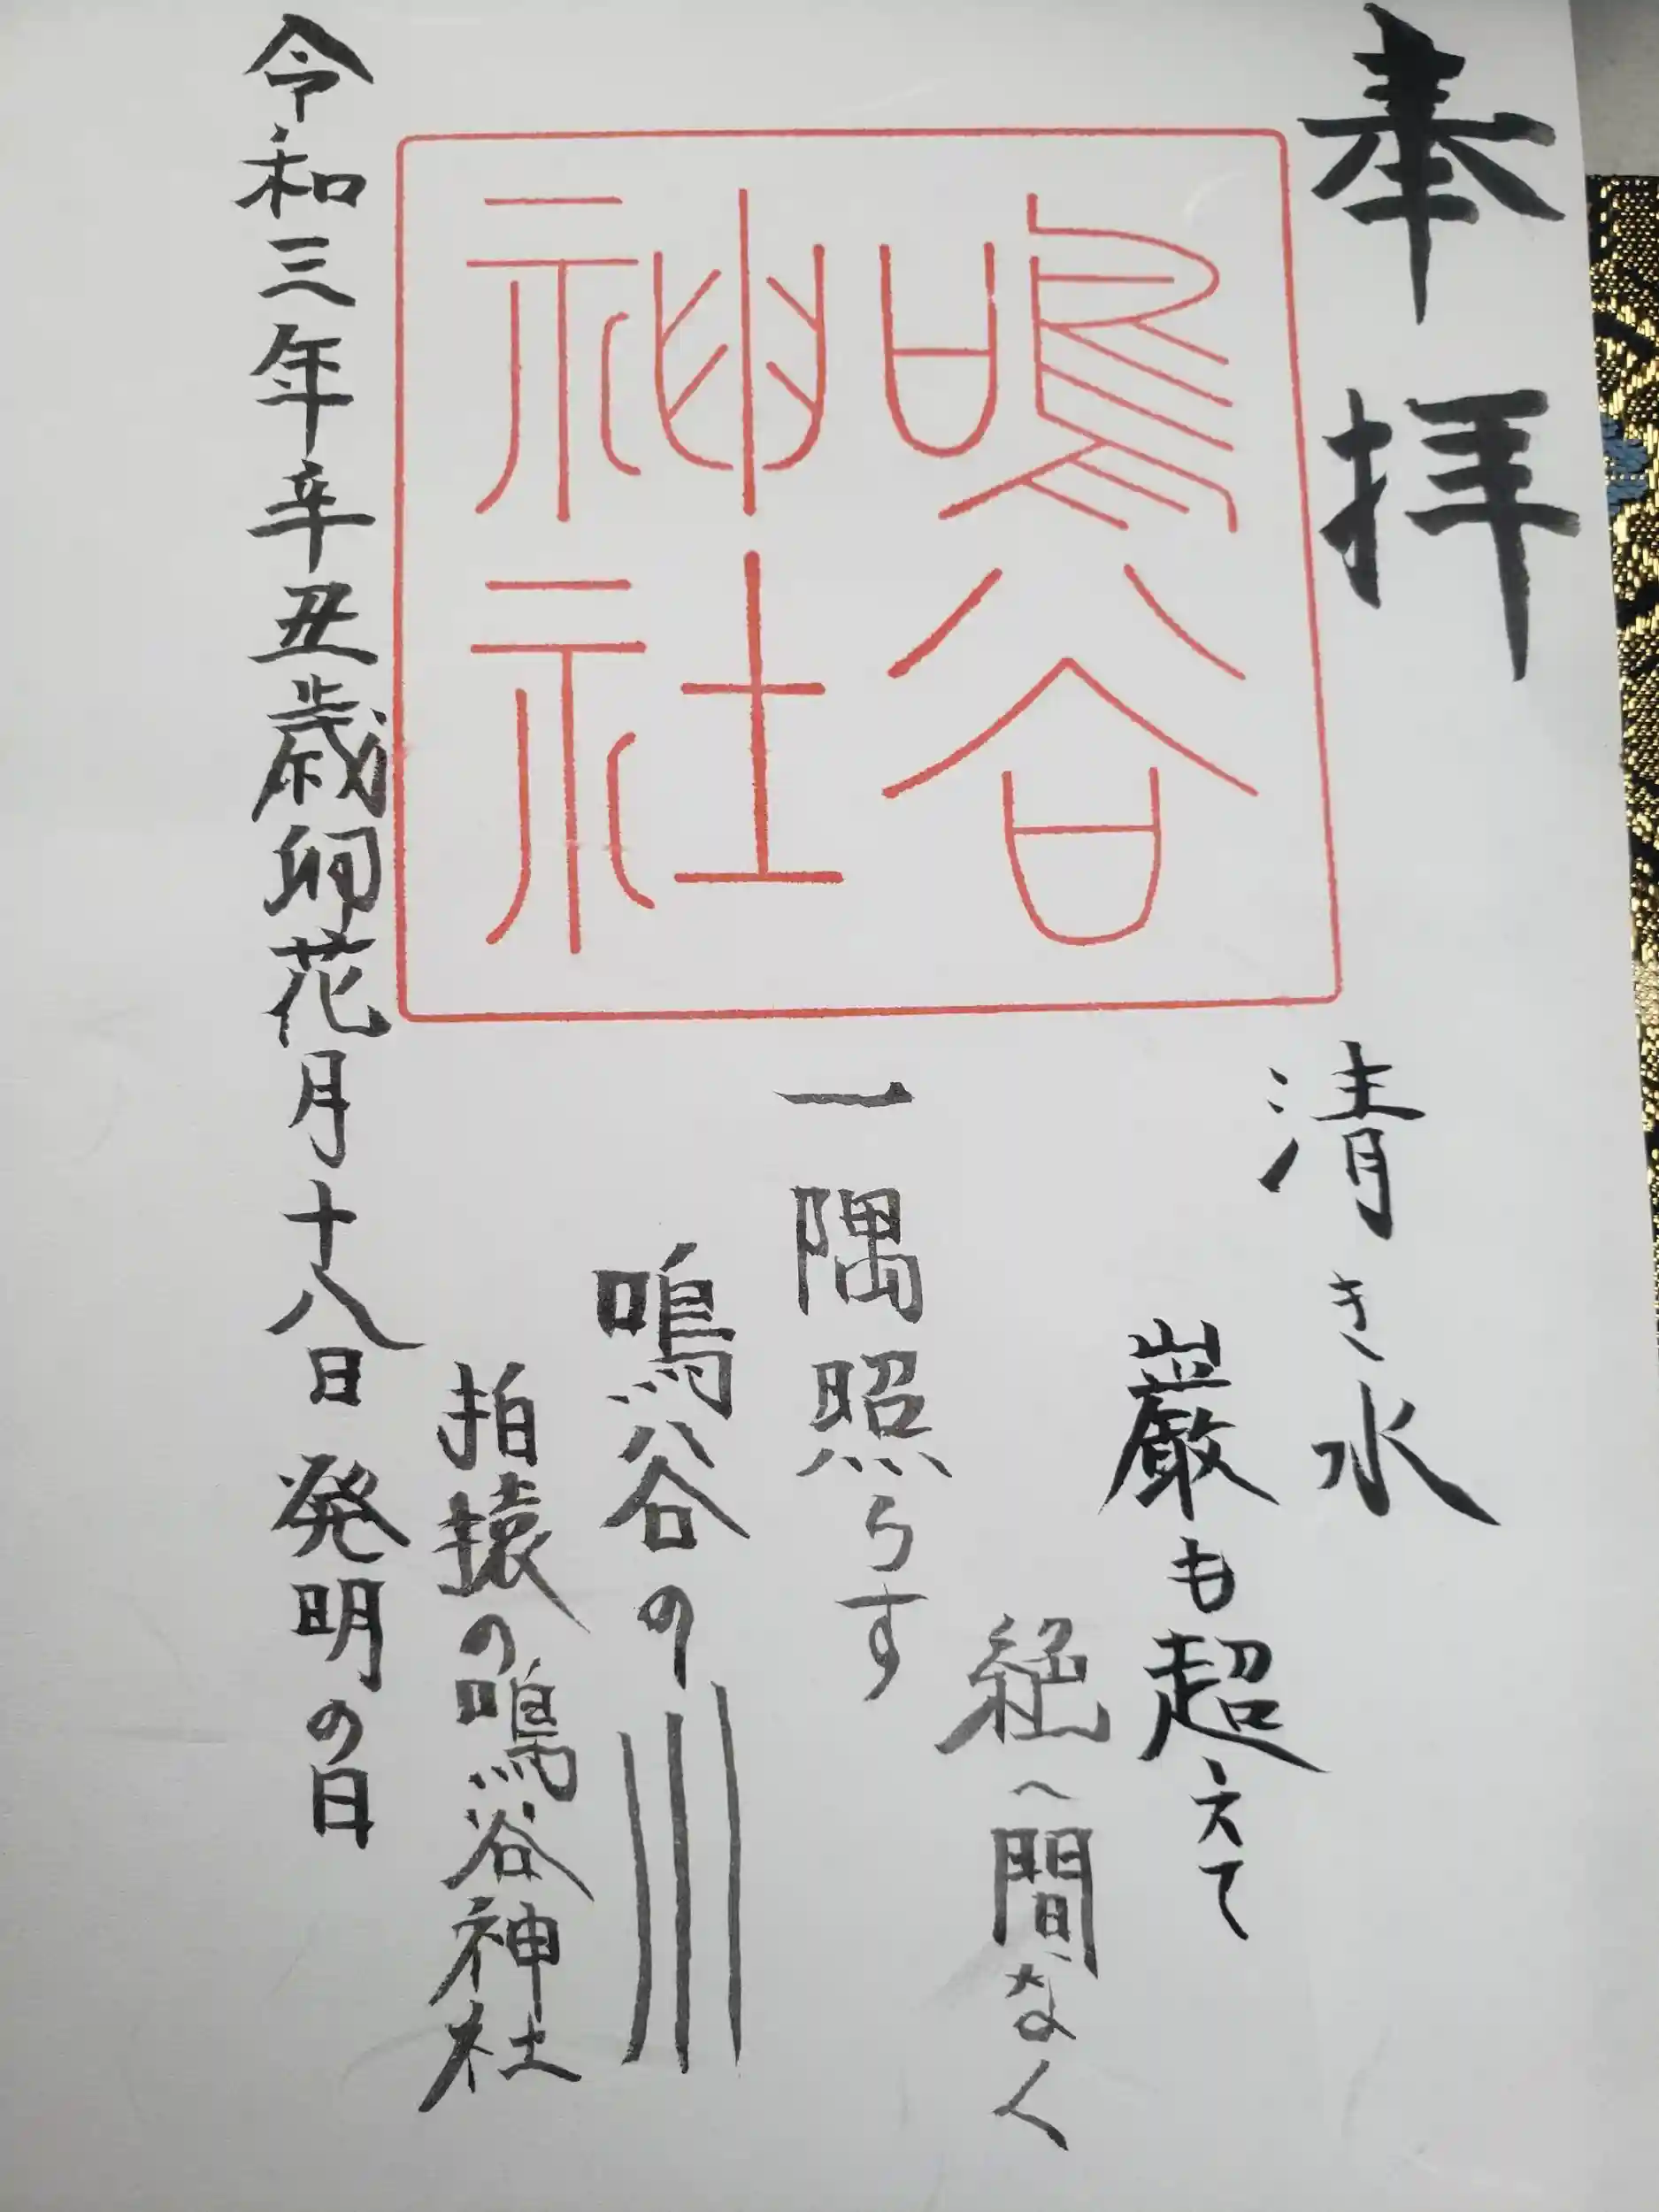 奉拝
鳴谷
神社
清き水
巌も超えて
絶へ間なく
一隅照らす
鳴谷の川
拍猿の鳴谷神社
令和三年辛丑歳卯花月十八日 発明の日